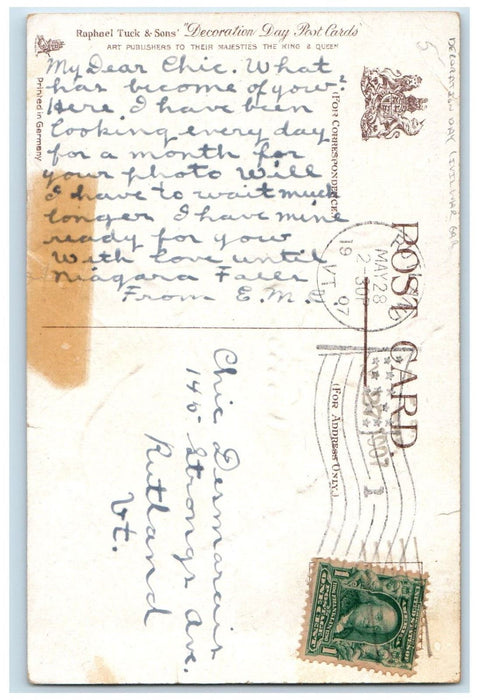 Raphael Tuck & Sons' "Decoration Day Post Cards"
ART PUBLISHERS TO THEIR MAJESTIES THE KING & QUEEN
Printed in Germany
My Dear Chic. What
has become of you?
Here I have been
looking every day
for a month for
your photo Will
I have to wait much
longer I have mine
ready for you
With love until
Niagara Falls
From E.M.
(FOR CORRESPONDENCE.)
POST CARD.
(FOR ADDRESS ONLY.)
DECORATION DAY CIVIL WAR GAR
MAY 28
2-30P
19 07
VT.
1907
1
Chic Desmarais
145 Strongs Ave.
Rutland
Vt.
1
1